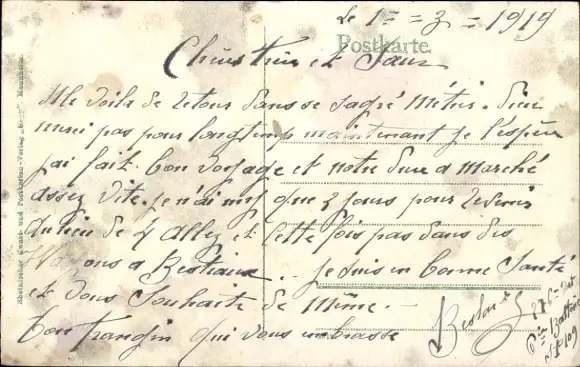 Le 1er = 3 = 1919
Postkarte
Chers frères et sœurs
Me voila de retour dans se sacré Métier. Dieu
merci pas pour longtemps maintenant je l'espère
jai fait bon voyage et notre a marché
assez vite. je n'ai mis que 3 jours pour revenir
Au lieu de 4 Allez et cette fois pas dans des
Wagons a Bestiaux .. je suis en bonne Santé
et vous souhaite de même.
bon frangin qui vous embrasse
Rheinischer Kunst- und Postkarten-Verlag